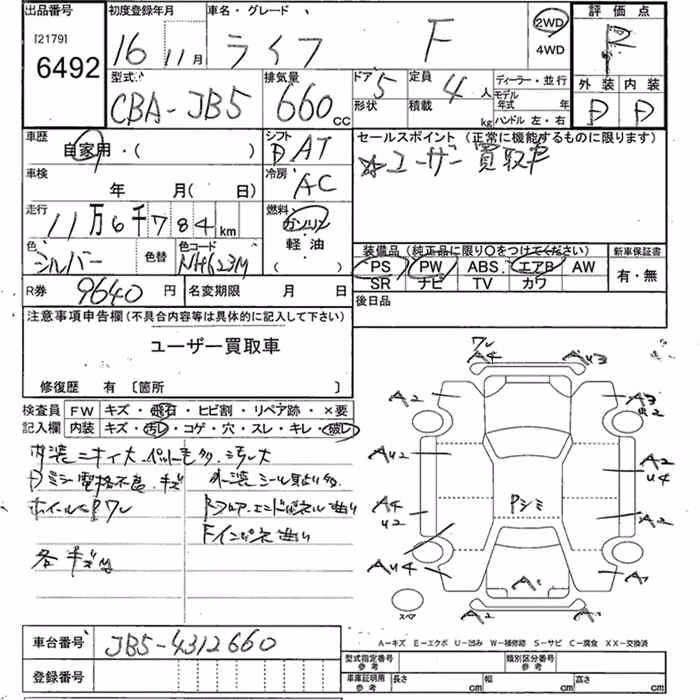 出品番号 初度登録年月 車名・グレード 2WD 評価点
[2179] 16 11月 ライフ F 4WD R
6492 型式 排気量 ドア 定員 ディーラー・並行 外装 内装
CBA-JB5 660 cc 5 4人 モデル年式 年 D D
形状 積載 kg ハンドル 左・右
車歴 シフト セールスポイント (正常に機能するものに限ります)
自家用・( ) AT ☆ユーザー買取車
車検 冷房
年 月( 日) AC
走行 燃料
11万6千784km ガソリン
色 色替 色コード 軽油 装備品 (純正品に限り○をつけてください) 新車保証書
シルバー NH623M ( ) PS PW ABS. エアB AW 有・無
R券 9640円 名変期限 月 日 SR ナビ TV カワ
後日品
注意事項申告欄 (不具合内容等は具体的に記入して下さい)
ユーザー買取車
修復歴 有 〔箇所 〕
検査員 FW キズ・飛石・ヒビ割・リペア跡・×要
記入欄 内装 キズ・汚レ・コゲ・穴・スレ・キレ・破レ
内装ニオイ大 ペット毛多 汚レ大
Dミラー電格不良 キズ 外装シール貼り多
Rフロア.エンドパネル曲り
Fインパネ曲り
各キズ
ワレ
A4 AU3
A2 A3
AU2 A2
U4
A4 A2
U2
AU4 A1
Pシミ
A1
A2 A1
スペア
A-キズ E-エクボ U-凹み W-補修跡 S-サビ C-腐食 XX-交換済
車台番号 JB5-4312660
型式指定番号 参考 類別区分番号 参考
登録番号 車庫証明用 参考 長さ cm 幅 cm 高さ cm